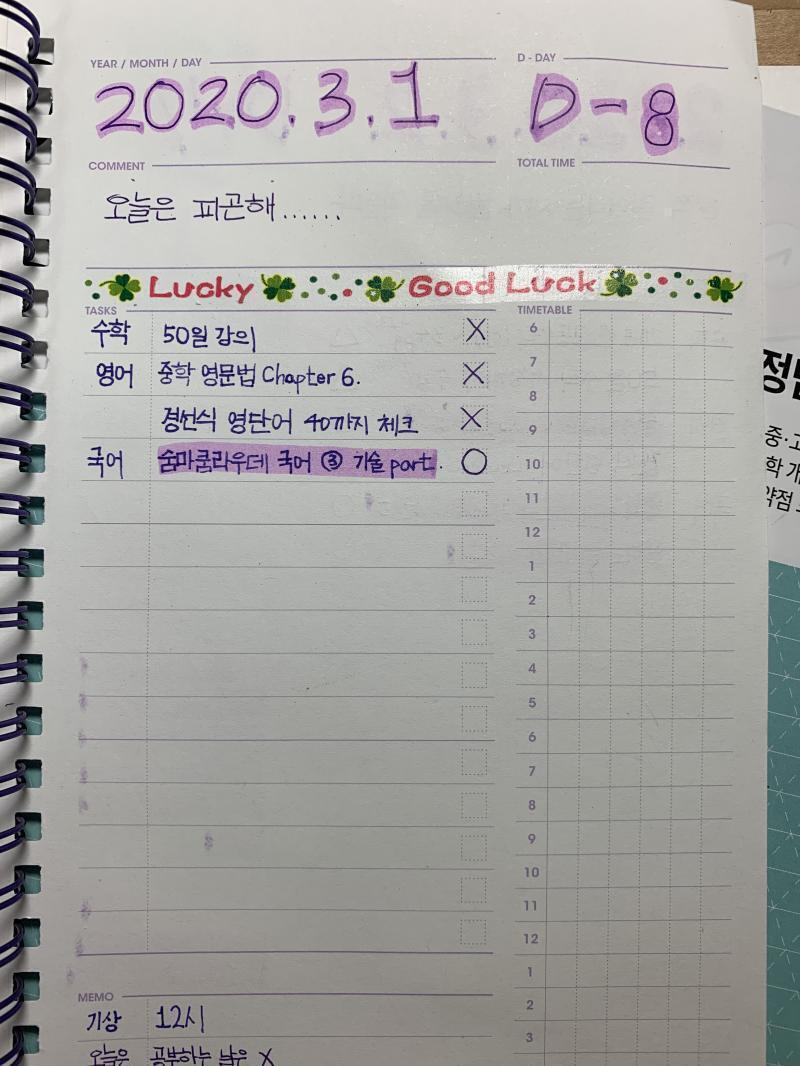 YEAR / MONTH / DAY D - DAY
2020.3.1 D-8
COMMENT TOTAL TIME
오늘은 피곤해......
Lucky Good Luck
TASKS TIMETABLE
수학 50일 강의 X
영어 중학 영문법 Chapter 6. X
경선식 영단어 40까지 체크 X
국어 숨마쿰라우데 국어 ③ 기술 part. O
6
7
8
9
10
11
12
1
2
3
4
5
6
7
8
9
10
11
12
1
2
3
MEMO
기상 12시
오늘은 공부하는 날은 X
정
중·고
학 개
약점